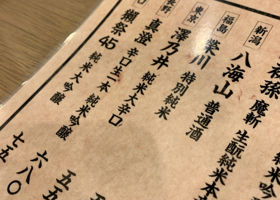 新潟
孫 魔斬 生酛純米本
八海山 普通酒
福島
栄川 特別純米
東京
澤乃井 純米大辛口
長野
真澄 辛口生一本 純米吟醸
獺祭45 純米大吟醸
五
五五
六八〇
七五